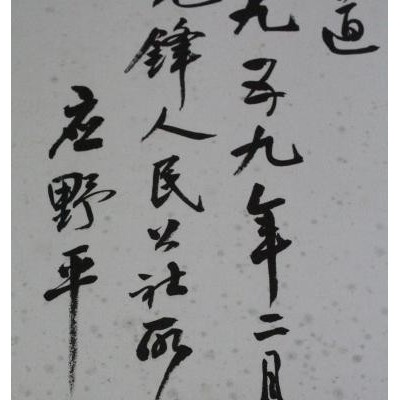 道
九五九年二月
鋒人民公社所
应野平